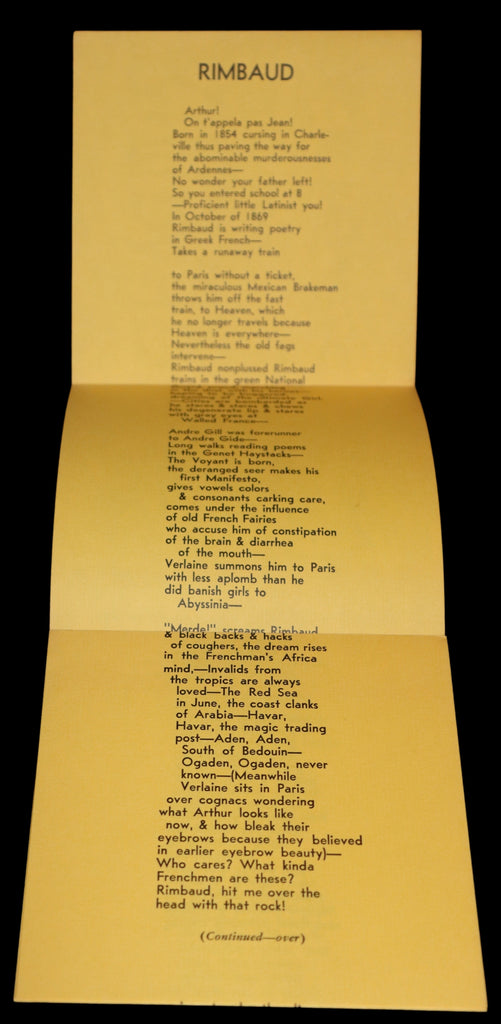 RIMBAUD
Arthur!
On t'appela pas Jean!
Born in 1854 cursing in Charle-
ville thus paving the way for
the abominable murderousnesses
of Ardennes—
No wonder your father left!
So you entered school at 8
—Proficient little Latinist you!
In October of 1869
Rimbaud is writing poetry
in Greek French—
Takes a runaway train
to Paris without a ticket,
the miraculous Mexican Brakeman
throws him off the fast
train, to Heaven, which
he no longer travels because
Heaven is everywhere—
Nevertheless the old fags
intervene—
Rimbaud nonplussed Rimbaud
trains in the green National
he stares & stares & chews
his degenerate lip & stares
with grey eyes at
Walled France—
Andre Gill was forerunner
to Andre Gide—
Long walks reading poems
in the Genet Haystacks—
The Voyant is born,
the deranged seer makes his
first Manifesto,
gives vowels colors
& consonants carking care,
comes under the influence
of old French Fairies
who accuse him of constipation
of the brain & diarrhea
of the mouth—
Verlaine summons him to Paris
with less aplomb than he
did banish girls to
Abyssinia—
"Merde!" screams Rimbaud
& black backs & hacks
of coughers, the dream rises
in the Frenchman's Africa
mind,—Invalids from
the tropics are always
loved—The Red Sea
in June, the coast clanks
of Arabia—Havar,
Havar, the magic trading
post—Aden, Aden,
South of Bedouin—
Ogaden, Ogaden, never
known—(Meanwhile
Verlaine sits in Paris
over cognacs wondering
what Arthur looks like
now, & how bleak their
eyebrows because they believed
in earlier eyebrow beauty)—
Who cares? What kinda
Frenchmen are these?
Rimbaud, hit me over the
head with that rock!
(Continued—over)